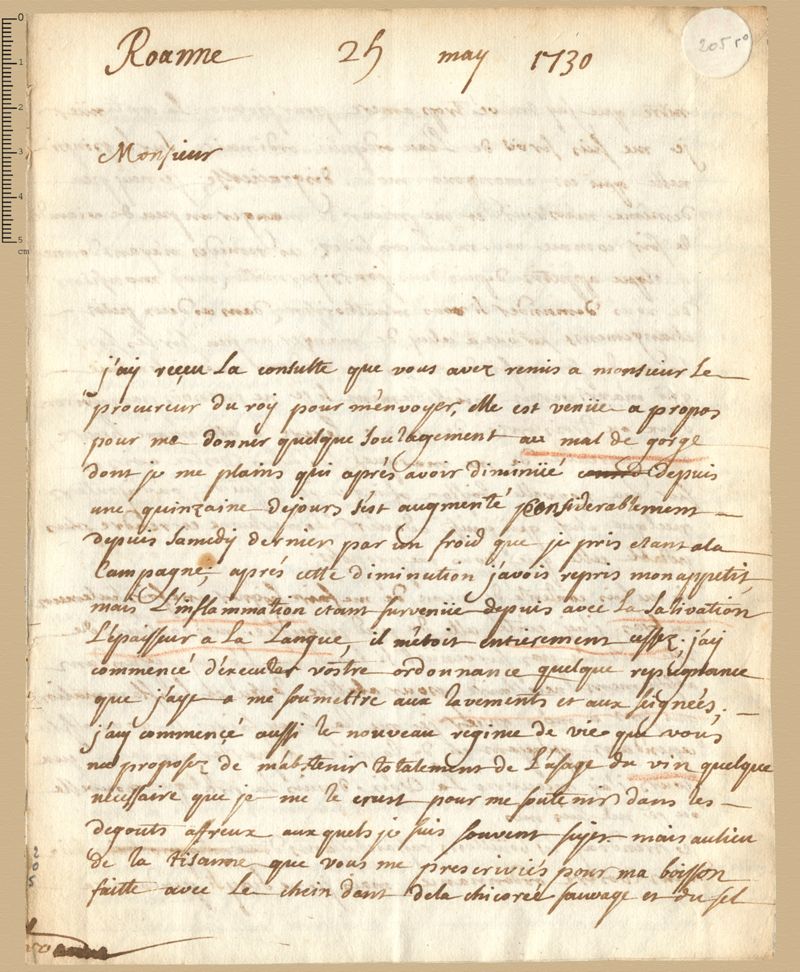 205 r°
Roanne 25 may 1730
Monsieur
j'ay reçeu La consulte que vous avez remis a monsieur Le
procureur du roy pour m'envoyer, elle est veniie a propos
pour me donner quelque soulagement au mal de gorge
dont je me plains qui aprés avoir diminüé depuis
une quinzaine de jours s'est augmenté considerablement
depuis samedy dernier par un froid que je pris etant a la
Campagne; aprés cette diminution j'avois repris mon appetit,
mais L'inflammation etant surveniie depuis avec la salivation,
L'epaisseur a la Langue, il m'etoit entierement cessé; j'ay
commencé d'executer vostre ordonnance quelque repugnance
que j'aye a me soumettre aux lavements et aux seignées;
j'ay commencé aussi le nouveau regime de vie que vous
me proposez de m'abstenir totalement de L'usage du vin quelque
necessaire que je me le crust pour me soutenir dans les
degouts affreux auxquels je suis souvent sujet mais au lieu
de la tisanne que vous me prescriviés pour ma boisson
faitte avec Le chein dant de la chicorée sauvage et du sel
0
1
2
3
4
5
cm
205